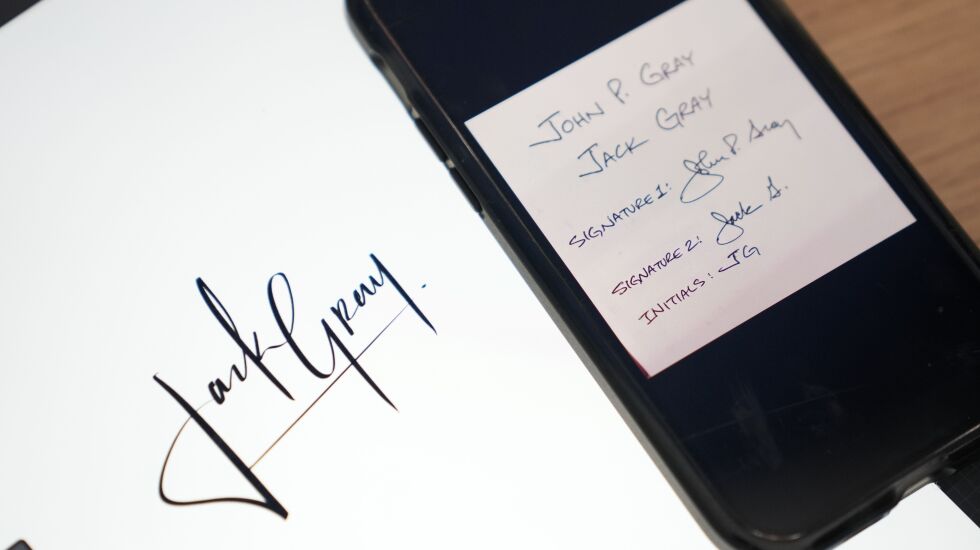 Jack Gray.
JOHN P. GRAY
JACK GRAY
SIGNATURE 1: John P. Gray
SIGNATURE 2: Jack G.
INITIALS: JG